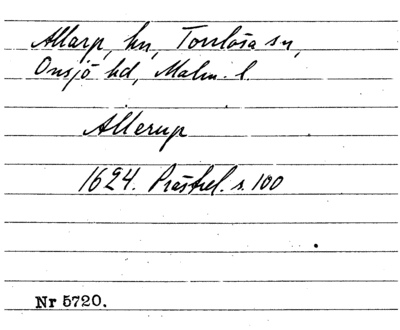 Allarp, hn, Torrlösa sn,
Onsjö hd, Malm. l.
Allerup
1624. Prästrel. s. 100
Nr 5720.